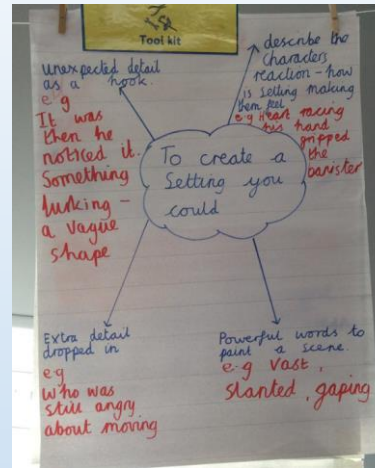 Tool kit
unexpected detail
as a hook.
e.g
It was
then he
noticed it.
Something
lurking -
a vague
shape
describe the
characters
reaction - how
is setting making
them feel
e.g Heart racing
his hand
gripped
the
banister
To create a
Setting you
could
Extra detail
dropped in
eg
who was
still angry
about moving
Powerful words to
paint a scene.
e.g vast,
slanted, gaping